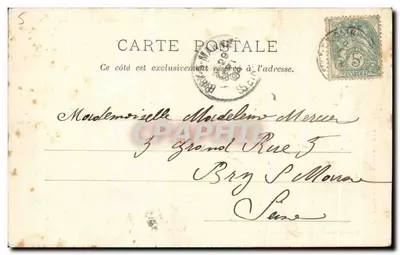 5
CARTE POSTALE
Ce côté est exclusivement réservé à l'adresse.
Mademoiselle Madeleine Mercier
3 Grand Rue 3
Bry S Marne
Seine